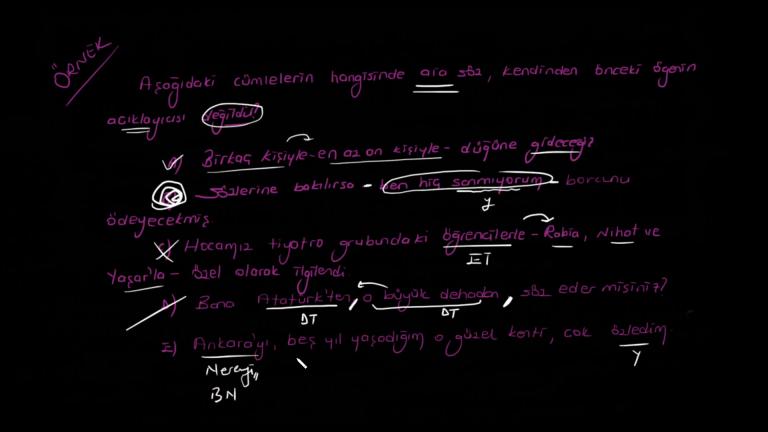 ÖRNEK
Aşağıdaki cümlelerin hangisinde ara söz, kendinden önceki ögenin
açıklayıcısı değildir?
A) Birkaç kişiyle-en az on kişiyle- düğüne gideceğiz
Sözlerine bakılırsa - ben hiç sanmıyorum - borcunu
y
ödeyecekmiş.
C) Hocamız tiyatro grubundaki öğrencilerle - Rabia, Nihat ve
Eİ
Yaşar'la - özel olarak ilgilendi
A) Bana Atatürk'ten, o büyük dehadan, söz eder misiniz?
DT DT
E) Ankara'yı, beş yıl yaşadığım o güzel kenti, çok özledim.
Nereyi Y
BN